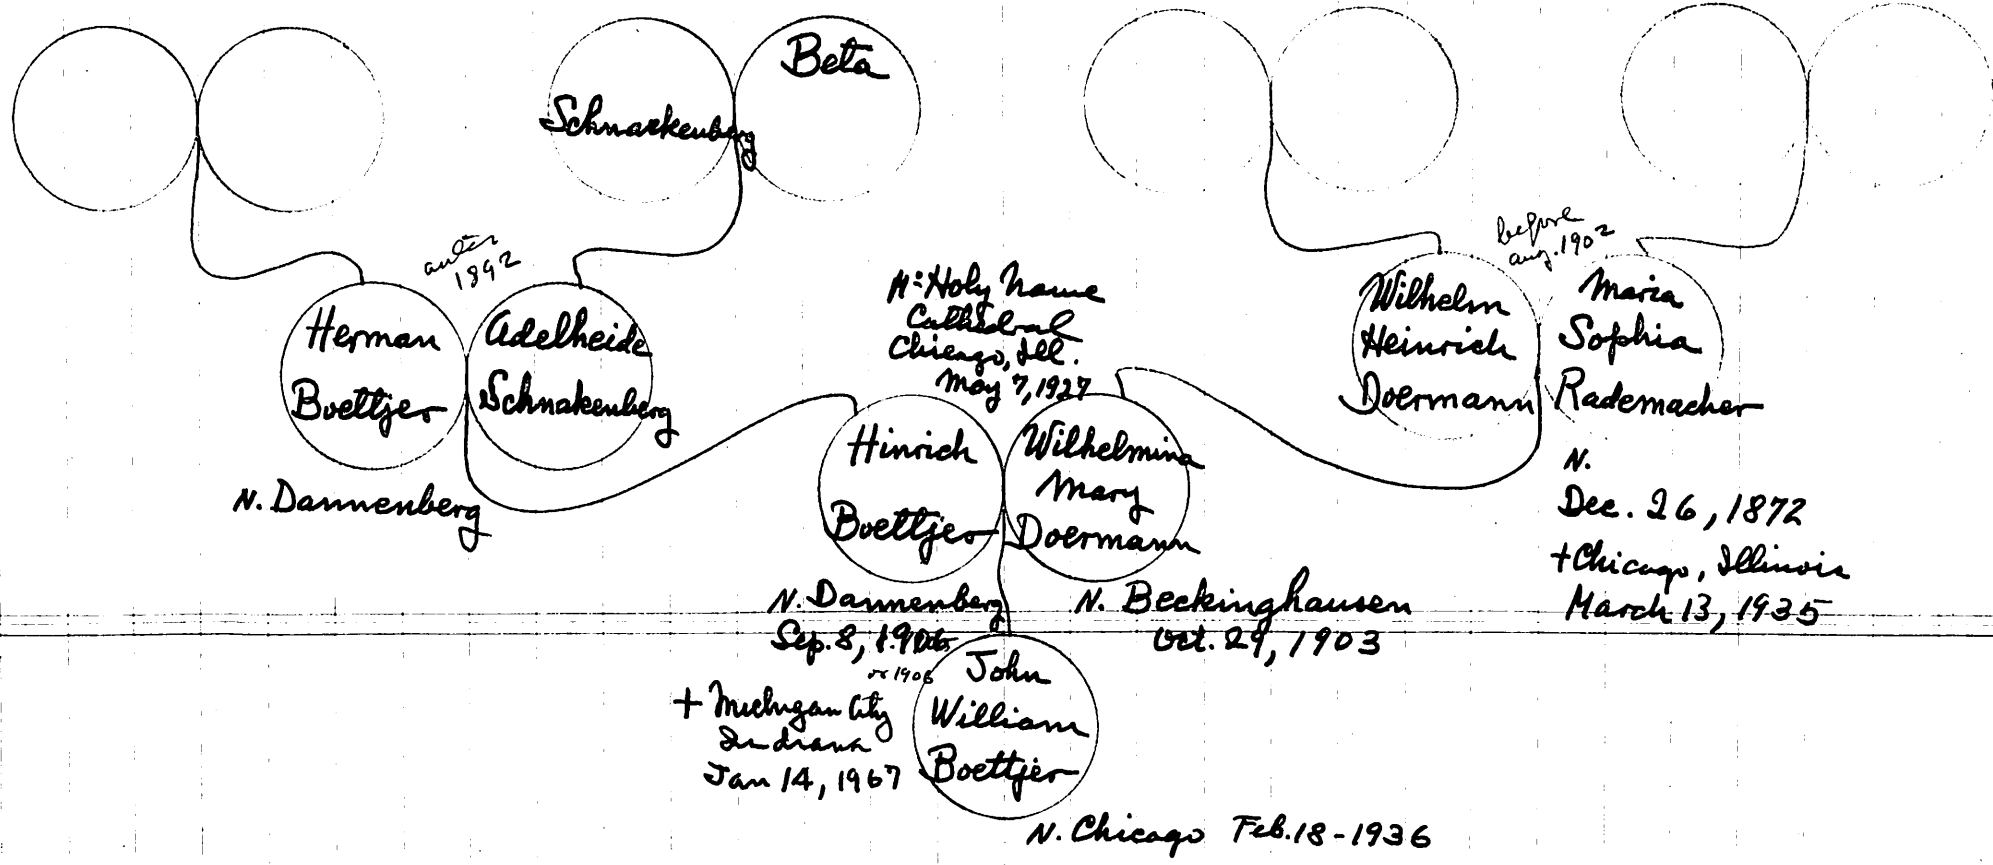 Beta
Schnackenberg
1892
before
aug. 1902
Herman
Boettjer
Adelheide
Schnakenberg
N. Dannenberg
M: Holy Name
Cathedral
Chicago, Ill.
May 7, 1927
Wilhelm
Heinrich
Doermann
Maria
Sophia
Rademacher
N.
Dec. 26, 1872
+ Chicago, Illinois
March 13, 1935
Hinrich
Boettjer
Wilhelmina
Mary
Doermann
N. Dannenberg
Sep. 8,
or 1906
+ Michigan City
Indiana
Jan 14, 1967
N. Beckinghausen
Oct. 29, 1903
John
William
Boettjer
N. Chicago Feb. 18-1936